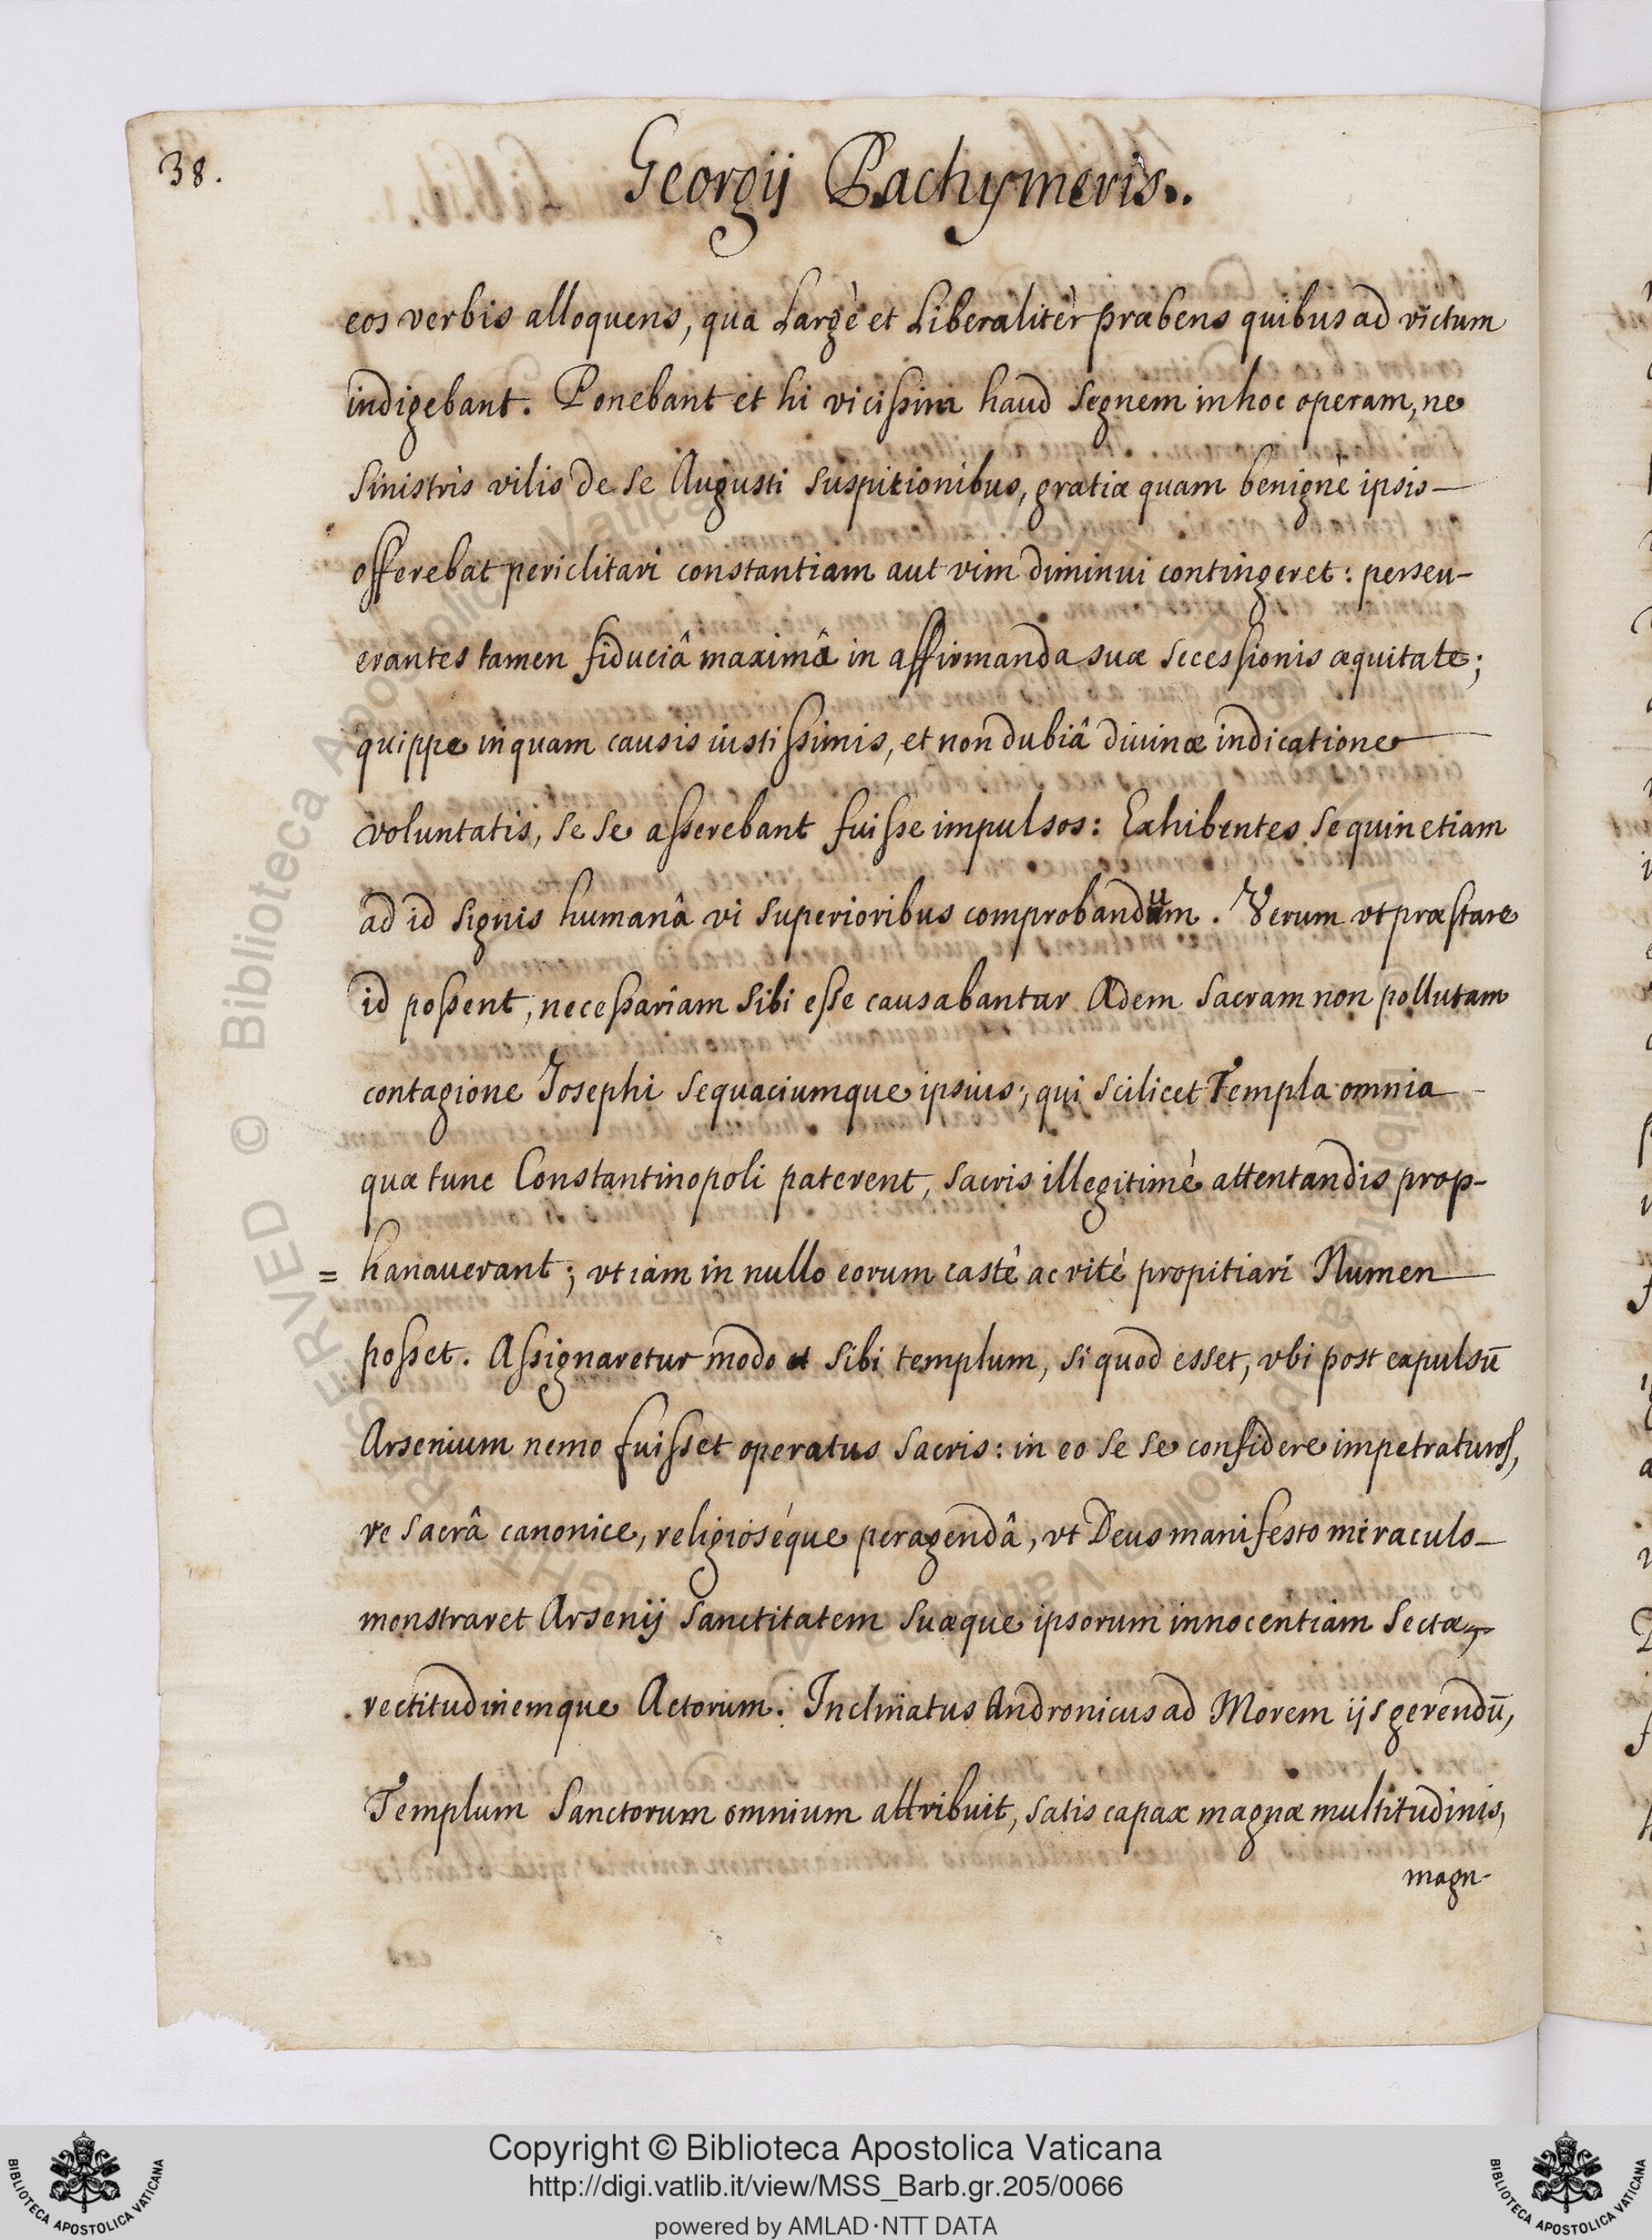 38.
Georgij Pachymeris.
eos verbis alloquens, qua Largè et Liberalitèr præbens quibus ad victum
indigebant. Ponebant et hi vicissim haud segnem in hoc operam, ne
sinistris vilis de se Augusti suspitionibus, gratiæ quam benignè ipsis
offerebat periclitari constantiam aut vim diminui contingeret: perseu-
erantes tamen fiduciâ maximâ in affirmanda suæ secessionis æquitate;
quippe inquam causis iustissimis, et non dubiâ diuinæ indicatione
voluntatis, se se asserebant fuisse impulsos: Exhibentes se quin etiam
ad id signis humanâ vi superioribus comprobandum. Verum vt præstare
id possent, necessariam sibi esse causabantur Ædem sacram non pollutam
contagione Josephi sequaciumque ipsius; qui scilicet Templa omnia
quæ tunc Constantinopoli paterent, sacris illegitimè attentandis prop-
= hanauerant; vt iam in nullo eorum castè ac ritè propitiari Numen
posset. Assignaretur modo et sibi templum, si quod esset, vbi post expulsū
Arsenium nemo fuisset operatus sacris: in eo se se confidere impetraturos,
re sacrâ canonice, religioséque peragendâ, vt Deus manifesto miraculo
monstraret Arsenij sanctitatem suæque ipsorum innocentiam sectæ,
rectitudinemque Actorum. Inclinatus Andronicus ad Morem ijs gerendū,
Templum Sanctorum omnium attribuit, satis capax magnæ multitudinis,
magn-
Copyright © Biblioteca Apostolica Vaticana
http://digi.vatlib.it/view/MSS_Barb.gr.205/0066
powered by AMLAD·NTT DATA